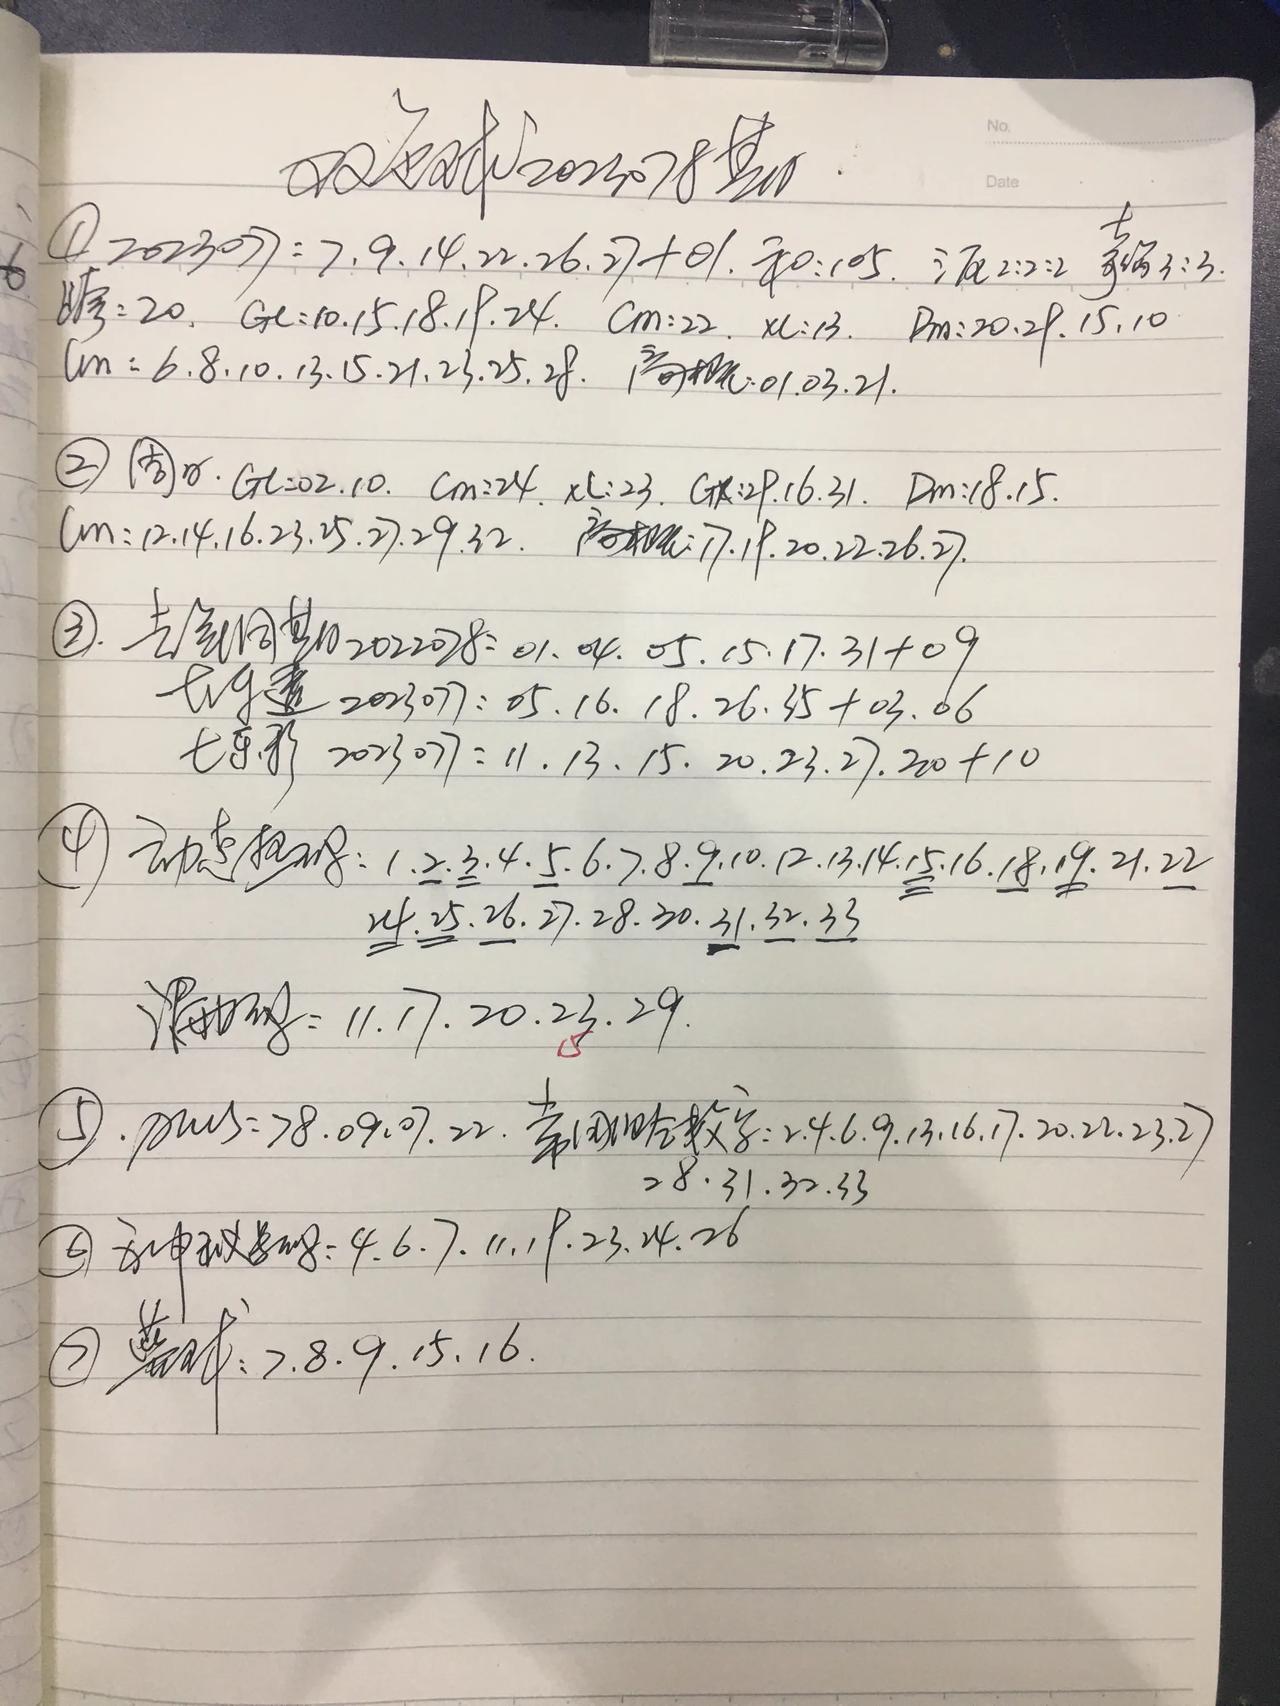 双色球2023078期
No.
Date
① 2023077=7.9.14.22.26.27+01.和:105. 三区2:2:2 奇偶3:3.
跨=20. GL:10.15.18.19.24. Cm:22. XL:13. Dm:20.29.15.10
Cm:6.8.10.13.15.21.23.25.28. 高概:01.03.21.
② GL:02.10. Cm:24. XL:23. GX:29.16.31. Dm:18.15.
Cm:12.14.16.23.25.27.29.32. 高概:17.19.20.22.26.27.
③. 去年同期2022078=01.04.05.15.17.31+09
大乐透2023077:05.16.18.26.35+03.06
七乐彩2023077=11.13.15.20.23.27.20+10
④ 动态热码:1.2.3.4.5.6.7.8.9.10.12.13.14.15.16.18.19.21.22
24.25.26.27.28.30.31.32.33
滑动码=11.17.20.23.29.
15
⑤. =78.09.07.22. 数字:2.4.6.9.13.16.17.20.22.23.27
28.31.32.33
⑥ 码=4.6.7.11.19.23.24.26
⑦ 蓝球:7.8.9.15.16.